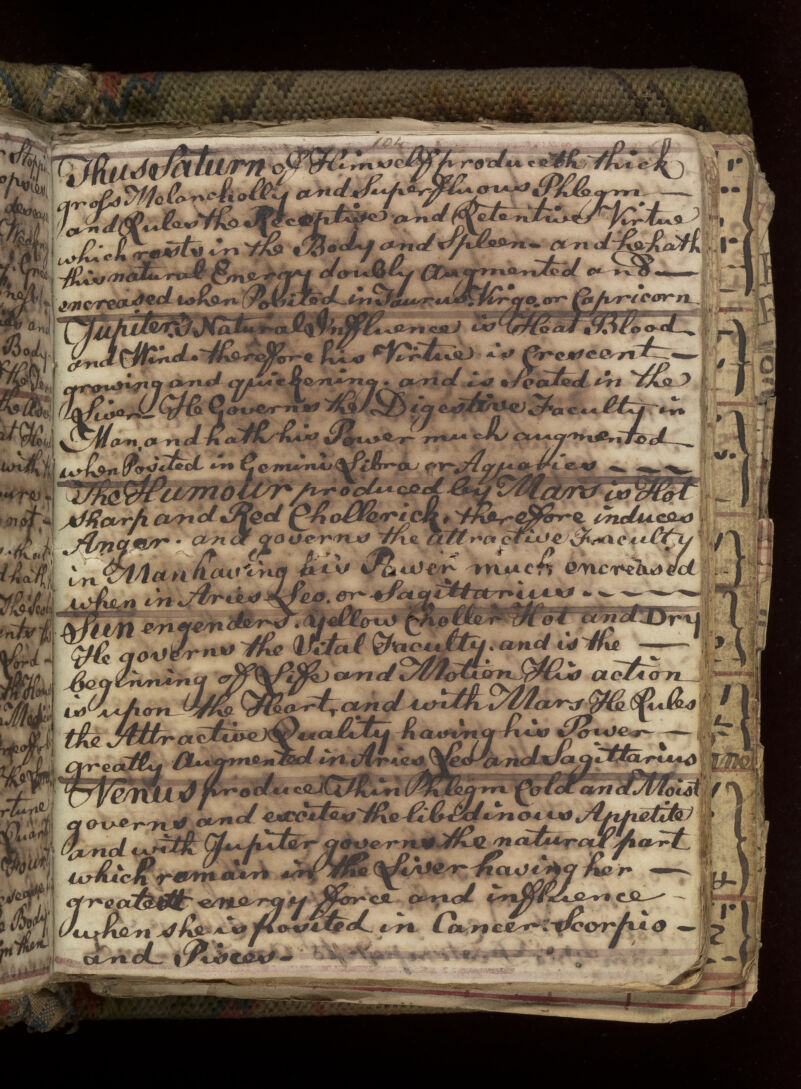 104
Thus Saturn of Himself produceth thick
gross Melancholly and Superfluous Phlegm —
and Rules the Receptive and Retentive Virtue
which rests in the Body and Spleen - and he hath
this natural Energy doubly Augmented and —
encreased when Posited in Taurus. Virgo. or Capricorn
Jupiter's Natural Influence is Heat Blood
and Wind. therefore his Virtue is Crescent —
growing and quickening. and is Seated in the
Liver - He Governs the Digestive Faculty in
Man. and hath his Power much augmented
when Posited in Gemini Libra or Aquaries - - -
The Humour produced by Mars is Hot
sharp and Red Chollerick. therefore induces
Anger. and governs the attractive Faculty
in Man having his Power much encreased
when in Aries Leo. or Sagittarius - - - -
Sun engenders. yellow Choller Hot and Dry
He governs the Vital Faculty. and is the —
beginning of Life and Motion His action
is upon the Heart, and with Mars He Rules
the Attractive Quality having his Power —
greatly Augmented in Aries Leo and Sagittarius
Venus produce Thin Phlegm Cold and Moist
governs and excites the libidinous Appetite
and with Jupiter governs the natural part
which remain in the Liver having her —
greatest energy fforce and influence
when she is posited in Cancer. Scorpio -
and Pisces -